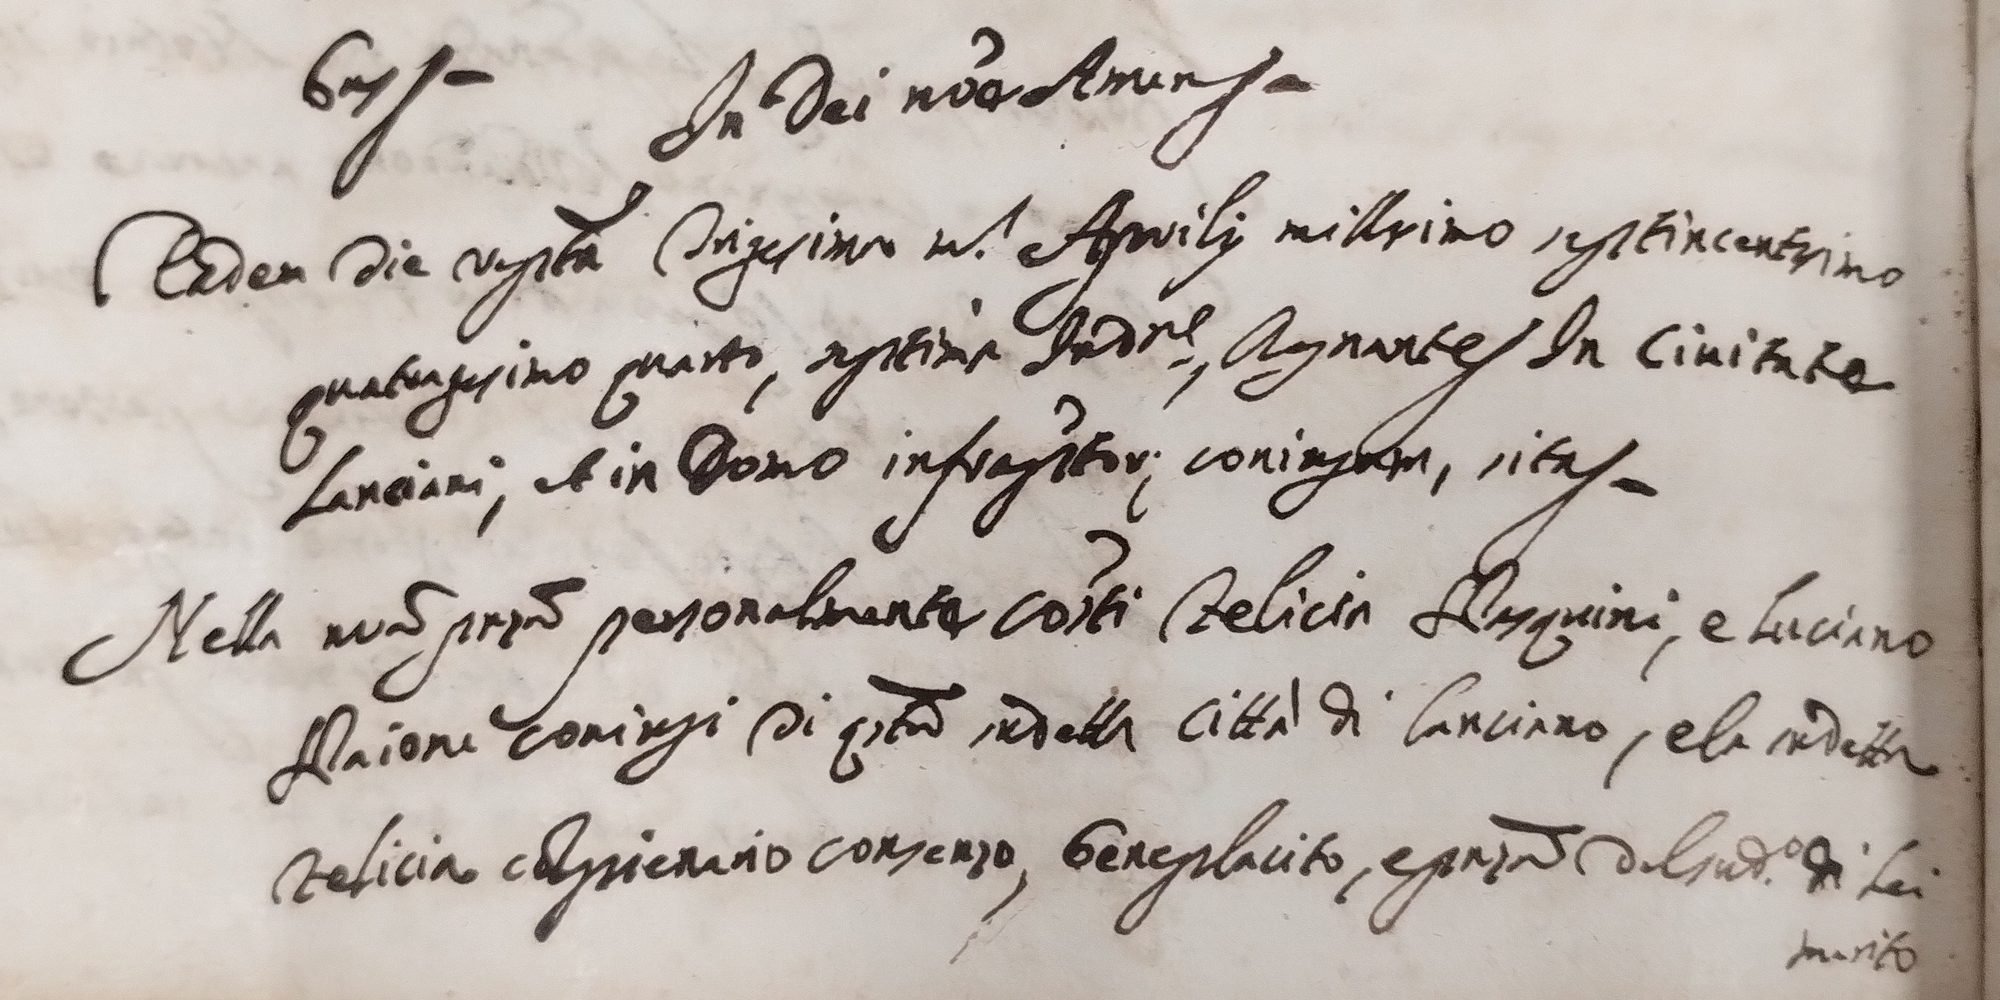 In Dei nõe Amen
Eadem die trigesima m.s Aprilis millesimo septincentesimo
quatragesimo quarto, septima Ind.ne, Regnante In Civitate
Lanciani, et in Domo infrascritor; coniugum, sita
Nella nrã prnzã personalmente costĩ Felicia Pasquini, e Luciano
Maione coniugi di qstã sudetta Città di Lanciano, e la sudetta
Felicia col pienario consenzo, beneplacito, e prnzã del sud.o di Lei
marito